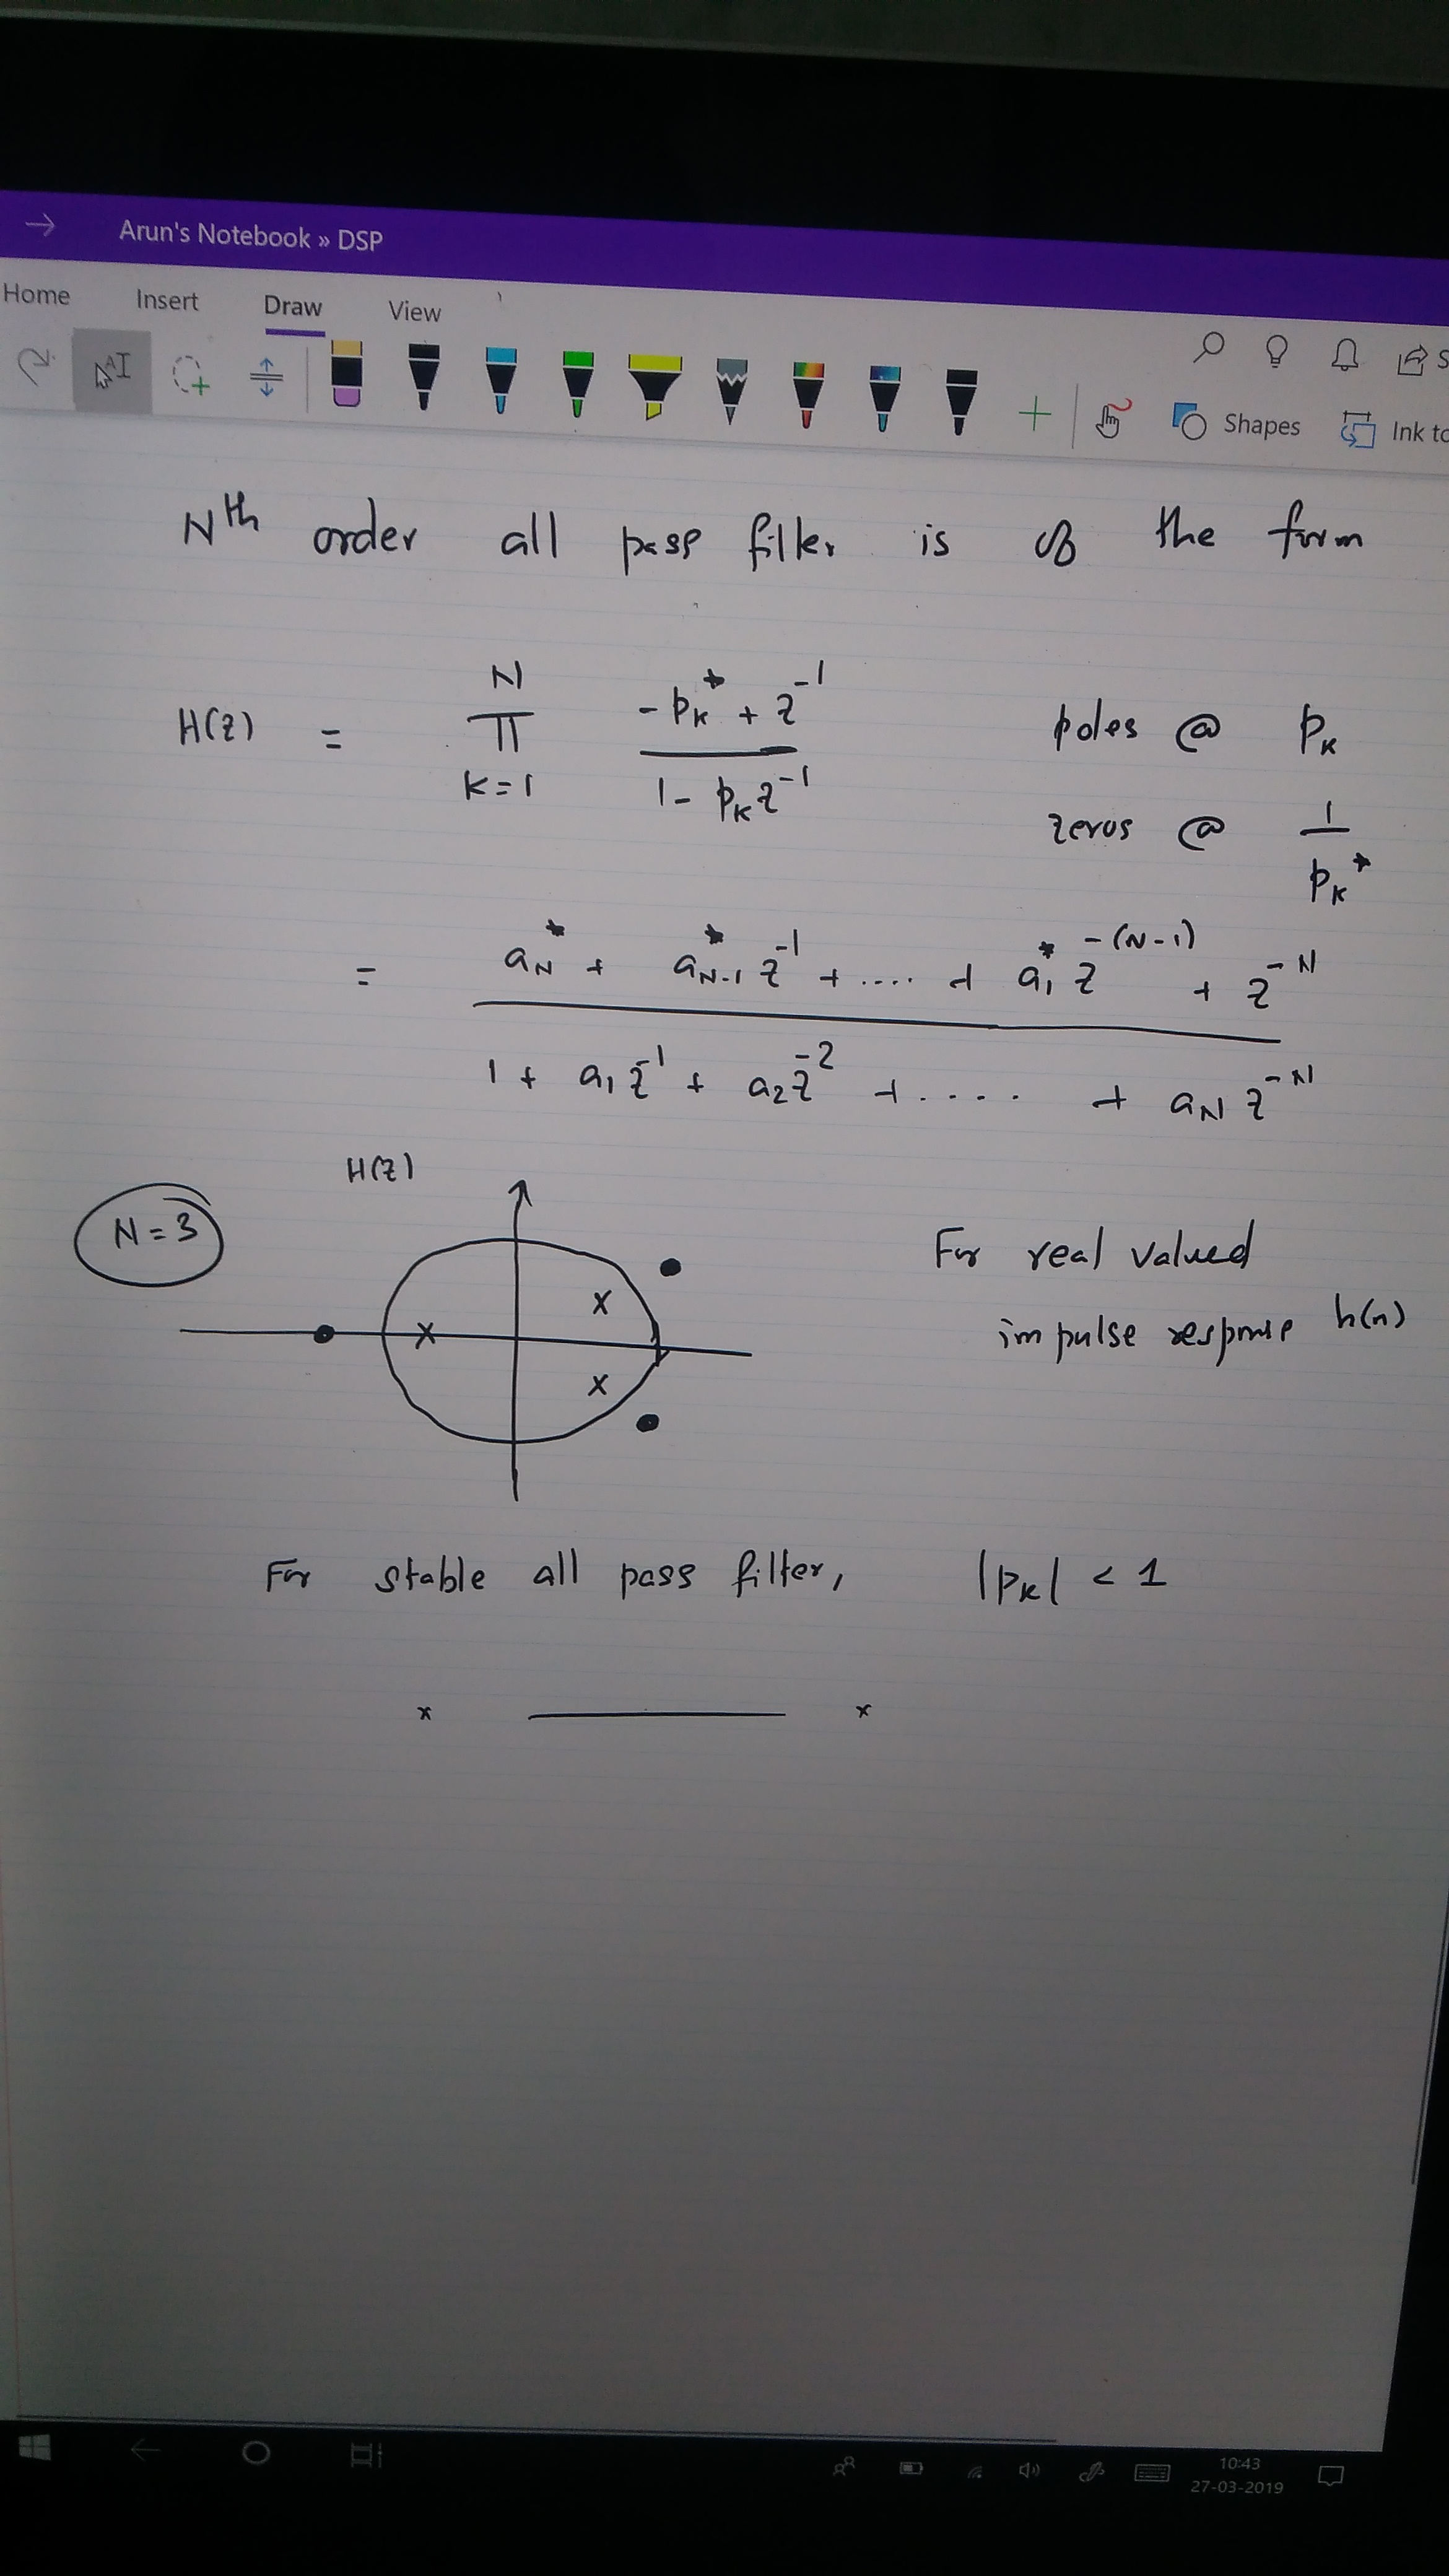 Arun's Notebook » DSP
Home Insert Draw View
Shapes Ink to
Nth order all pass filter is of the form
H(z) = N π k=1 -pk* + z^-1 / 1 - pk z^-1 poles @ pk
zeros @ 1 / pk*
= aN* + aN-1* z^-1 + .... + a1* z^-(N-1) + z^-N / 1 + a1 z^-1 + a2 z^-2 + .... + aN z^-N
H(z)
N = 3
For real valued
impulse response h(n)
For stable all pass filter, |pk| < 1
x ——— x
10:43
27-03-2019